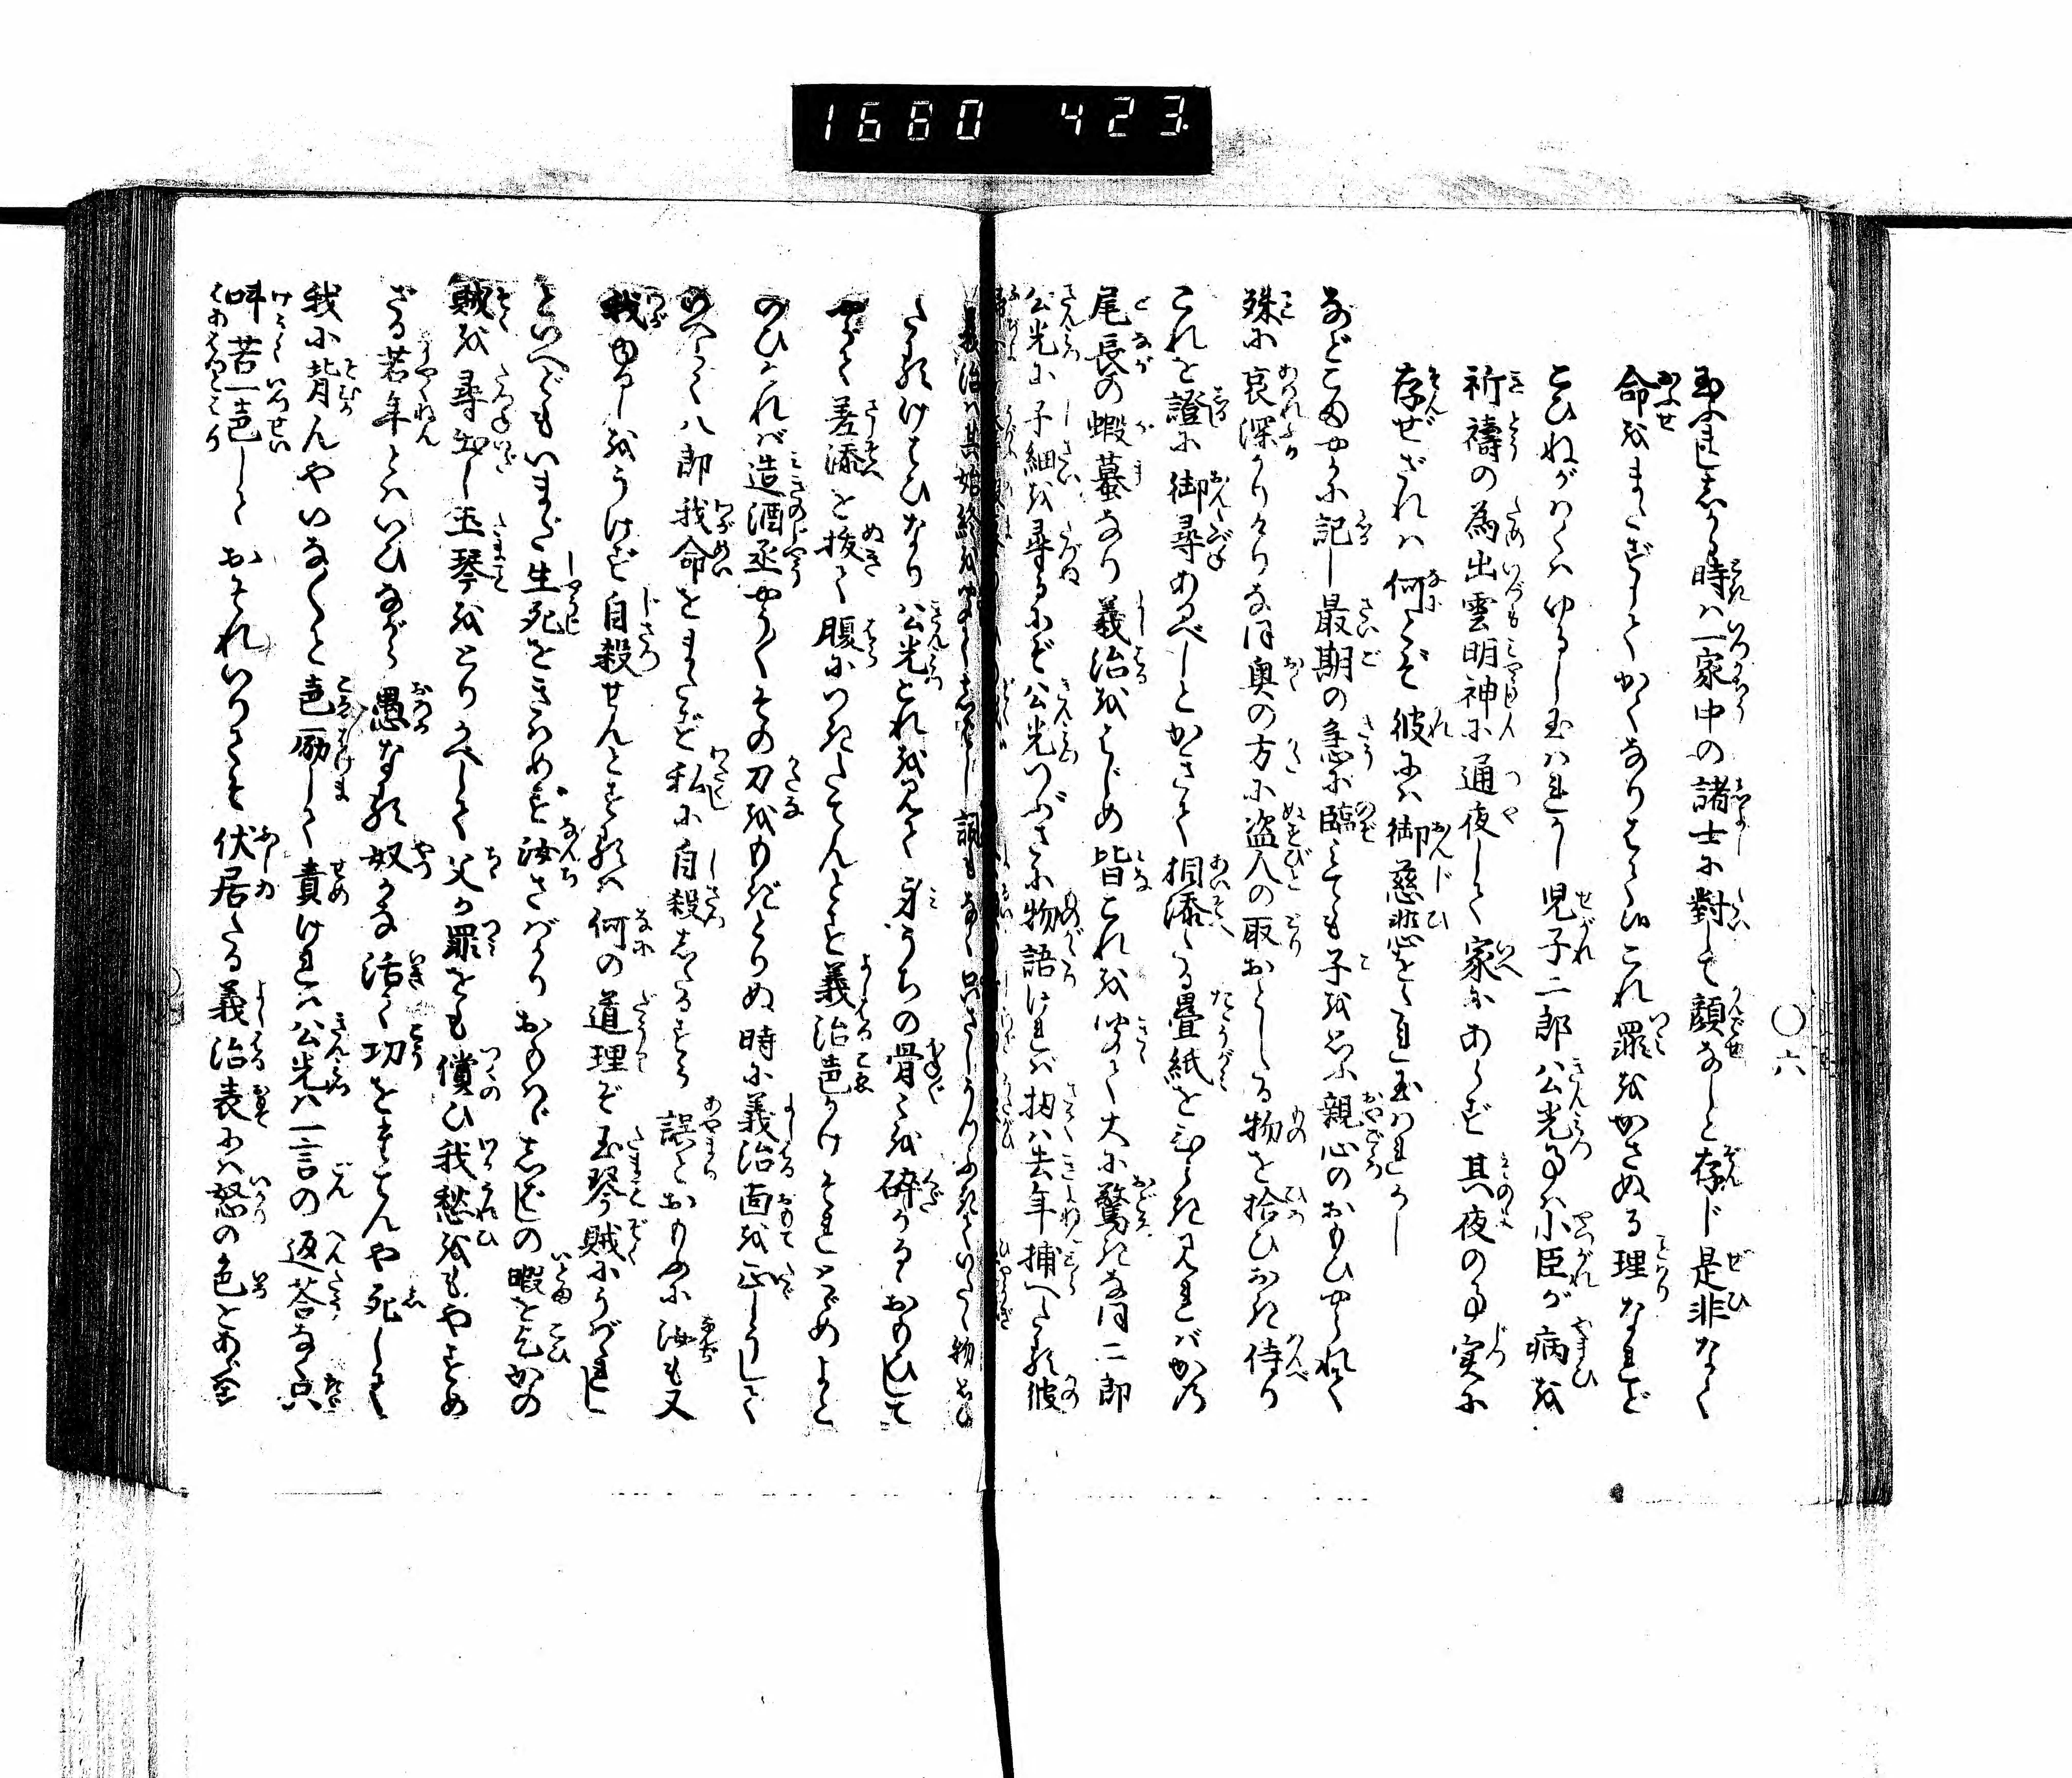 1680 423
〇六
玉ふ也しかる時ハ一家中の諸士に對して顔なしと存じ是非なく
命をまたずしてかくなりはて候これ罪をかさぬる理なれど
こひねがハくハゆるし玉ハれかし児子二郎公光事ハ小臣が病を
祈禱の為出雲明神に通夜して家にあらず其夜の事実に
存ぜざれハ何とぞ彼にハ御慈悲をたれ玉ハれかし
などこまやかに記し最期の急に臨ミても子を思ふ親心のおもひやられて
殊に哀深かりけりなほ奥の方に盗人の取おとしたる物を拾ひおき侍り
これを證に御尋あるべしとかきて相添たる畳紙をひらき見れバかの
尾長の蝦蟇なり義治をはじめ皆これを聞て大に驚きなほ二郎
公光に子細を尋るにぞ公光つぶさに物語けれバ扨ハ去年捕へたる彼
義治ハ其始終を聞て詞もなく只さしうつふきていたく物おも
たるけはひなり公光これを見て身うちの骨を碎かるおもひして
やがて差添を抜て腹につきたてんとす義治声かけそれとゞめよと
のひけれバ造酒丞やうやくその刀をもぎとりぬ時に義治面を正しうして
のべらく八郎我命をまたず私に自殺したるすら誤とおもふに汝も又
我ゆるしをうけず自殺せんとするハ何の道理ぞ玉琴賊にうばゝれし
といへどもいまだ生死をきハめず汝さバかりおもハゞしばしの暇を乞かの
賊を尋出し玉琴をとりかへして父が罪をも償ひ我愁をもやすめ
ざる若年とハいひながら愚なる奴かな活て功をたてんや死して
我に背んやいなやと声励して責けれハ公光ハ一言の返荅なく只
叫苦一声しておそれいりつゝ伏居たる義治表にハ怒の色をあらハせ